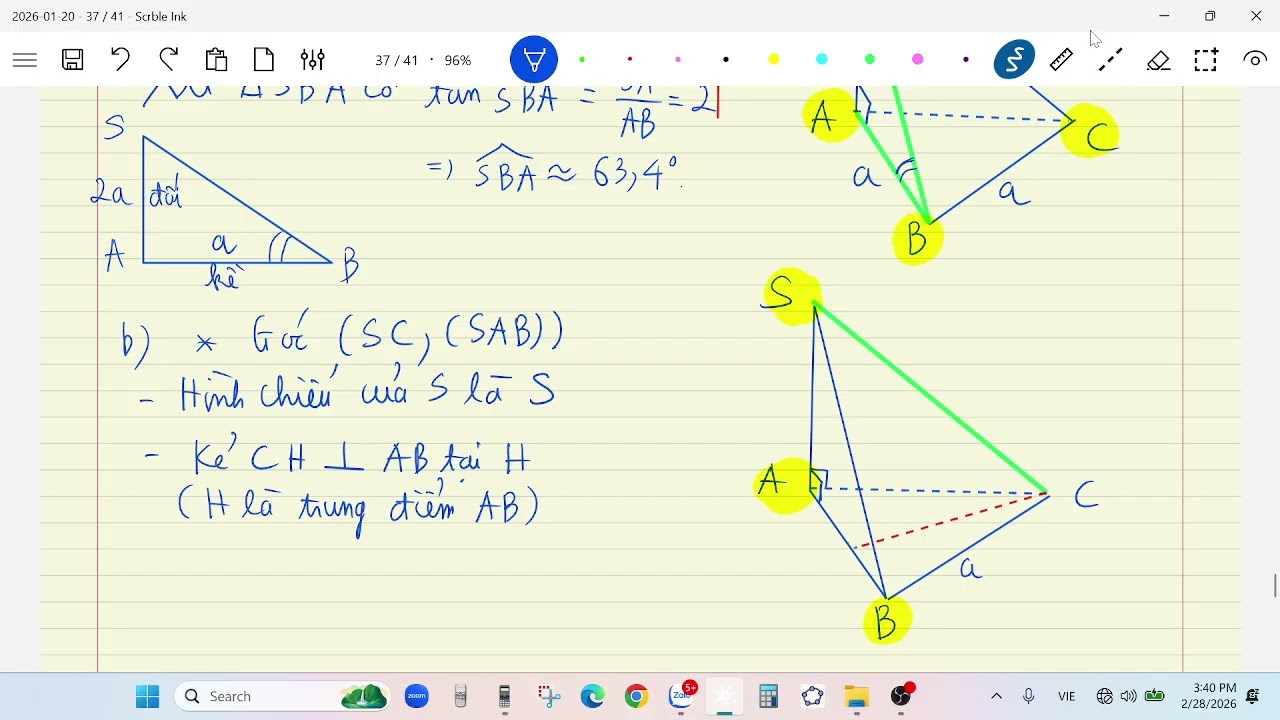 2026-01-20 - 37 / 41 - Scrble Ink
37 / 41 · 96%
Δ SBA có tan SBA = SA/AB = 2
=) SBA ≈ 63,4°
S
2a đối
A a B
kề
A
C
a
a
B
b) * Góc (SC, (SAB))
- Hình chiếu của S là S
- Kẻ CH ⊥ AB tại H
(H là trung điểm AB)
S
A
C
a
B
Search
zoom
Zalo
5+
VIE
3:40 PM
2/28/2026